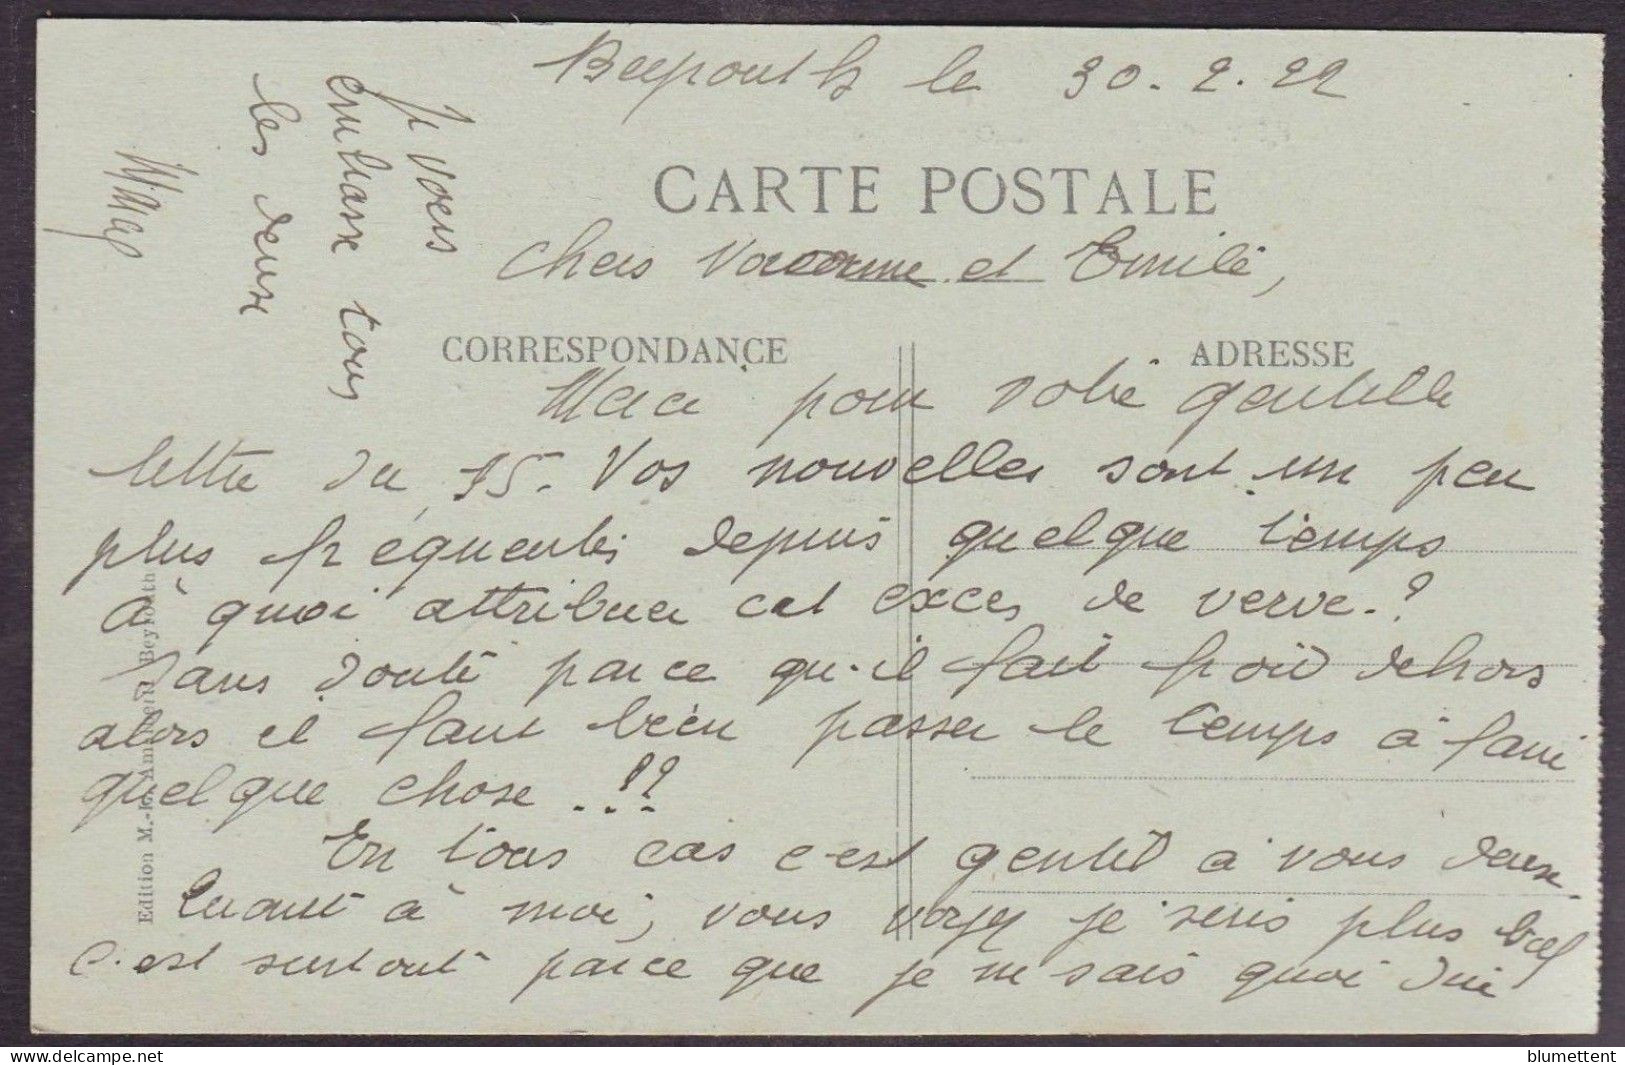 Beyrouth le 30.2.22
CARTE POSTALE
Chers et Emile,
CORRESPONDANCE
ADRESSE
Merci pour votre gentille
lettre du 15. Vos nouvelles sont un peu
plus fréquentes depuis quelque temps
à quoi attribuer cet exces de verve.?
Sans doute parce qu'il fait froid dehors
alors il faut bien passer le temps à faire
quelque chose.!!?
En tous cas c'est gentil à vous deux.
Quant à moi, vous voyez je suis plus bref
c'est surtout parce que je ne sais quoi dire
Je vous
embrasse tous
les deux
Edition M.-I. Beyrouth
blumettent